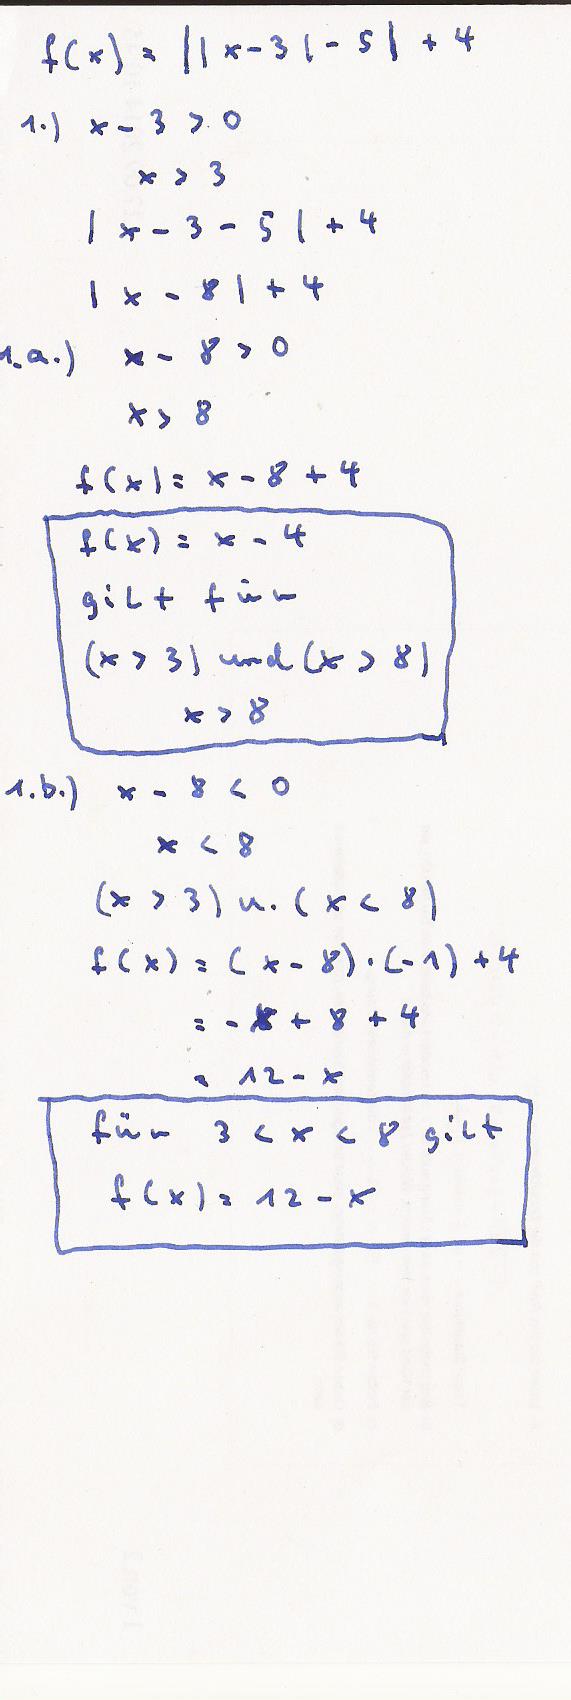 f(x) = ||x-3|-5|+4
1.) x-3 > 0
x > 3
|x-3-5|+4
|x-8|+4
1.a.) x-8 > 0
x > 8
f(x) = x-8+4
f(x) = x-4
gilt für
(x > 3) und (x > 8)
x > 8
1.b.) x-8 < 0
x < 8
(x > 3) u. (x < 8)
f(x) = (x-8)·(-1)+4
= -x+8+4
= 12-x
für 3 < x < 8 gilt
f(x) = 12-x